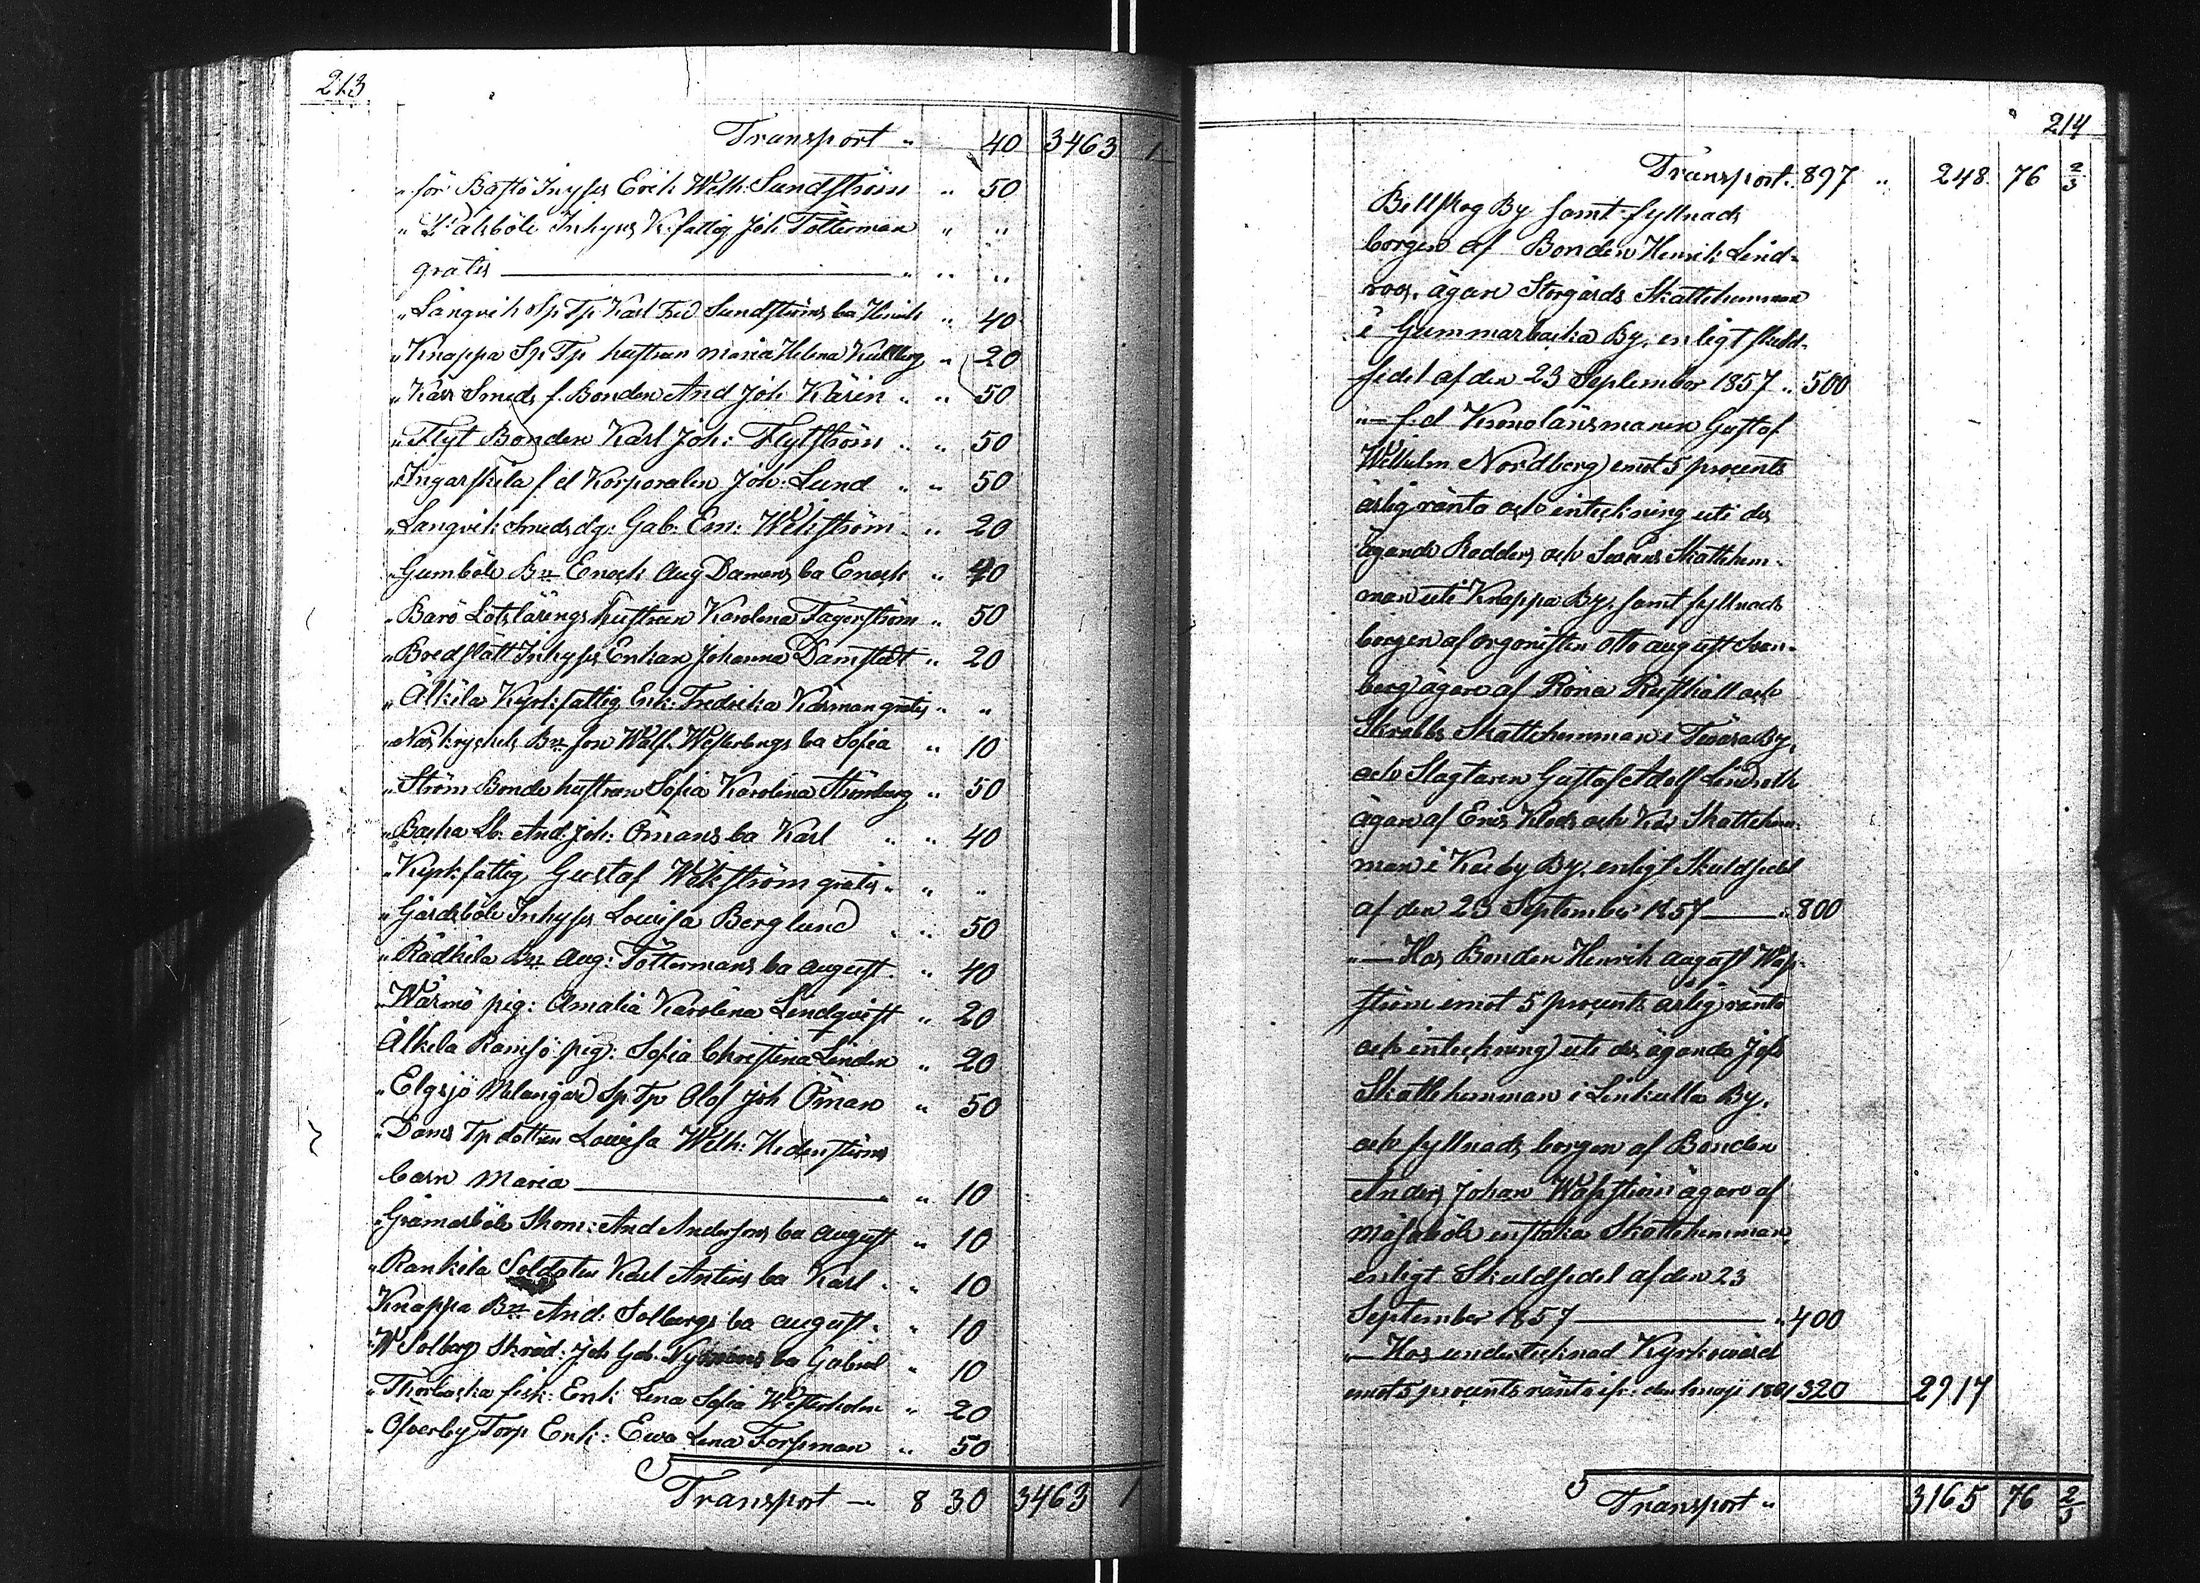 213
Transport " 40 3463 1
" för Bastö Inhyses Erik Wilh: Sundström " 50
" Wålsböle Inhyses K:fattig Joh Tötterman " "
gratis " " "
" Långvik Sp Tp Karl Fred Sundströms ba Henrik " 40
" Knappa Sp Tp hustrun Maria Helena Kullberg " 20
" Kärr Smeds f. Bonden And Joh: Kärin " " 50
" Flyt Bonden Karl Joh: Flytström " " 50
" Ingarskila f d Korporalen Joh: Lund " " 50
" Langvik Smeds dg: Gab: Em: Wikström " " 20
" Gumböle Bn Enock Aug Damens ba Enock " 40
" Barö Lotslärlings hustrun Karolina Fagerström " 50
" Bredslätt Inhyses Enkan Johanna Damstedt " 20
" Älkila Kyrk:fattig Enk: Fredrika Kärman gratis " "
" Näs kryckels Bn son Walf. Westerbergs ba Sofia " 10
" Ström Bonde hustrun Sofia Karolina Strömberg " 50
" Backa Lb: And: Joh: Ömans ba Karl " " 40
" Kyrk:fattig Gustaf Wikström gratis " " "
" Gårdsböle Inhyses Lovisa Berglund " " 50
" Rådkila Bn Aug: Töttermans ba August " 40
" Wärmö pig: Amalia Karolina Lindqvist " 20
Älkila Ramsö pig: Sofia Christina Linden " 20
" Elgsjö Malangård Sp: Tp Olof Joh Öman " 50
" Dams Tp dottren Lovisa Wilh: Hedenströms
barn Maria " " 10
" Gråmarböle Skom: And Anderssons ba August " 10
" Rankila Soldaten Karl Antins ba Karl " " 10
Knappa Bn And: Solbergs ba August " " 10
" W Solberg Skräd: Joh Gab. Nymans ba Gabriel " 10
" Thorbacka fisk: Enk Lena Sofia Westerholm " 20
" Öfverby Torp Enk: Ewa Lena Forsman " 50
Transport " 8 30 3463 1
214
Transport " 897 " 248 76 2/3
Bellskog By samt fyllnads
borgen af Bonden Henrik Lind-
roos, ägare Storgårds Skattehemman
i Gummarbacka By, enligt skuld-
sedel af den 23 September 1857 " 500
" — f.d Kronolänsmannen Gustaf
Wilhelm Nordberg emot 5 procents
årlig ränta och inteckning uti des
ägande Rodders och Svens Skattehem-
man uti Knappa By, samt fyllnads
borgen af orgonisten Otto August Svan-
berg ägare af Röna Rusthåll och
Skrabbs Skattehemman i Tvära By,
och Slagtaren Gustaf Adolf Lindroth
ägare af Ers Klods och Kås Skattehem-
man i Kårby By, enligt Skuldsedel
af den 23 September 1857 " 800
" — Hos Bonden Henrik August Wass-
ström emot 5 procents årlig ränta
och inteckning uti des ägande Jofs
Skattehemman i Linkulla By,
och fyllnads borgen af Bonden
Anders Johan Wasström ägare af
Måsaböle enstaka Skattehemman,
enligt Skuldsedel af den 23
September 1857 " 400
" — Hos undertecknad Kyrkovärd
emot 5 procents ränta ifr: den 1 maji 1861 320 2917
Transport " 3165 76 2/3